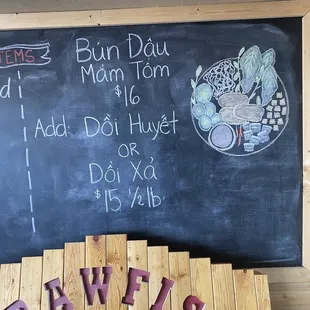 TEMS
d
Bún Dậu
Mắm Tôm
$16
Add: Dồi Huyết
OR
Dồi Xả
$15 ½ lb
RAWFIS